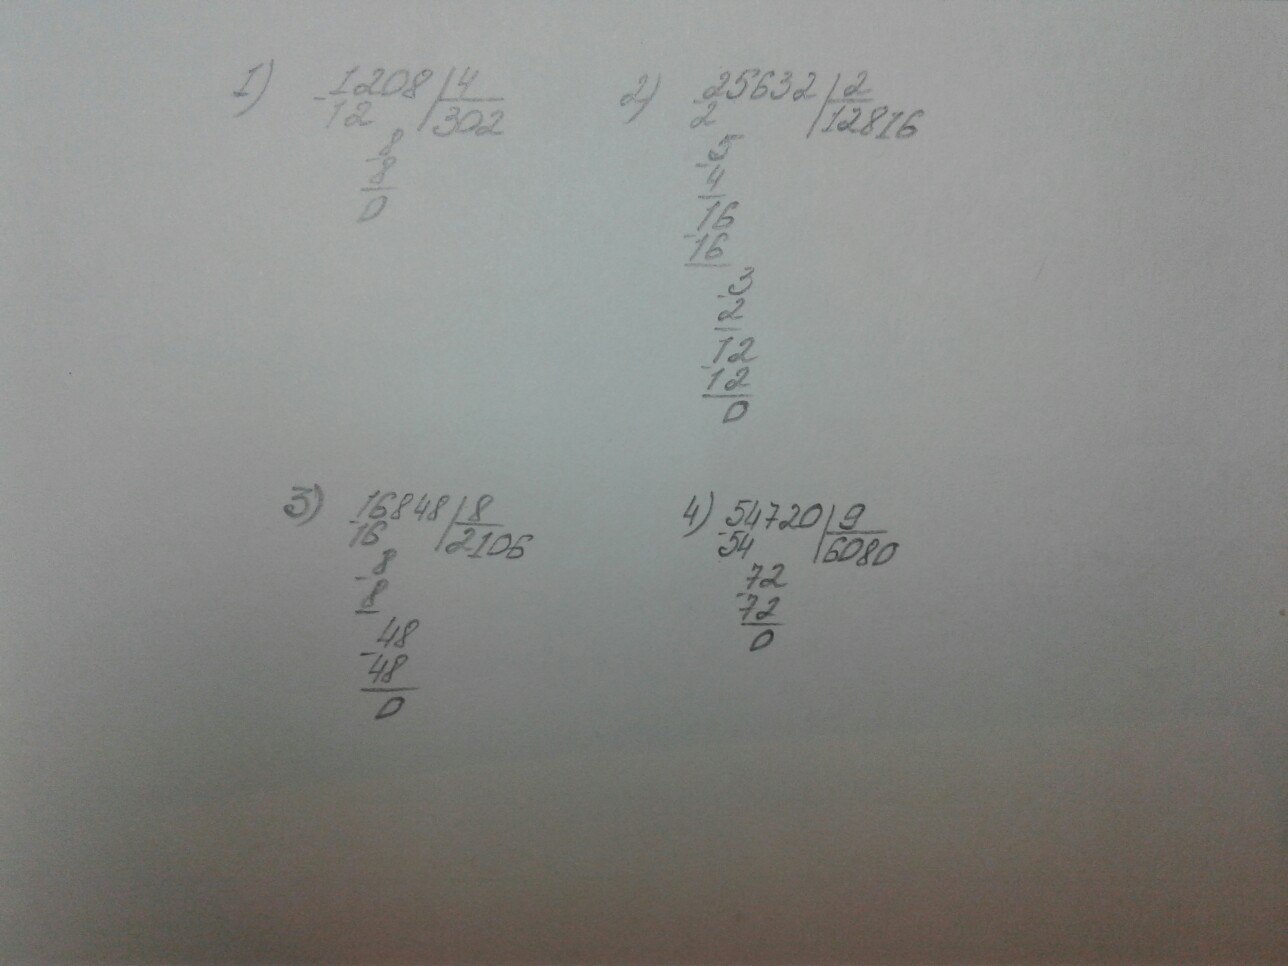 1) -1208 | 4
12 | 302
8
-8
0
2) 25632 | 2
-2 | 12816
-5
4
16
-16
-3
2
12
-12
0
3) -16848 | 8
16 | 2106
-8
8
-48
48
0
4) -54720 | 9
54 | 6080
-72
72
0